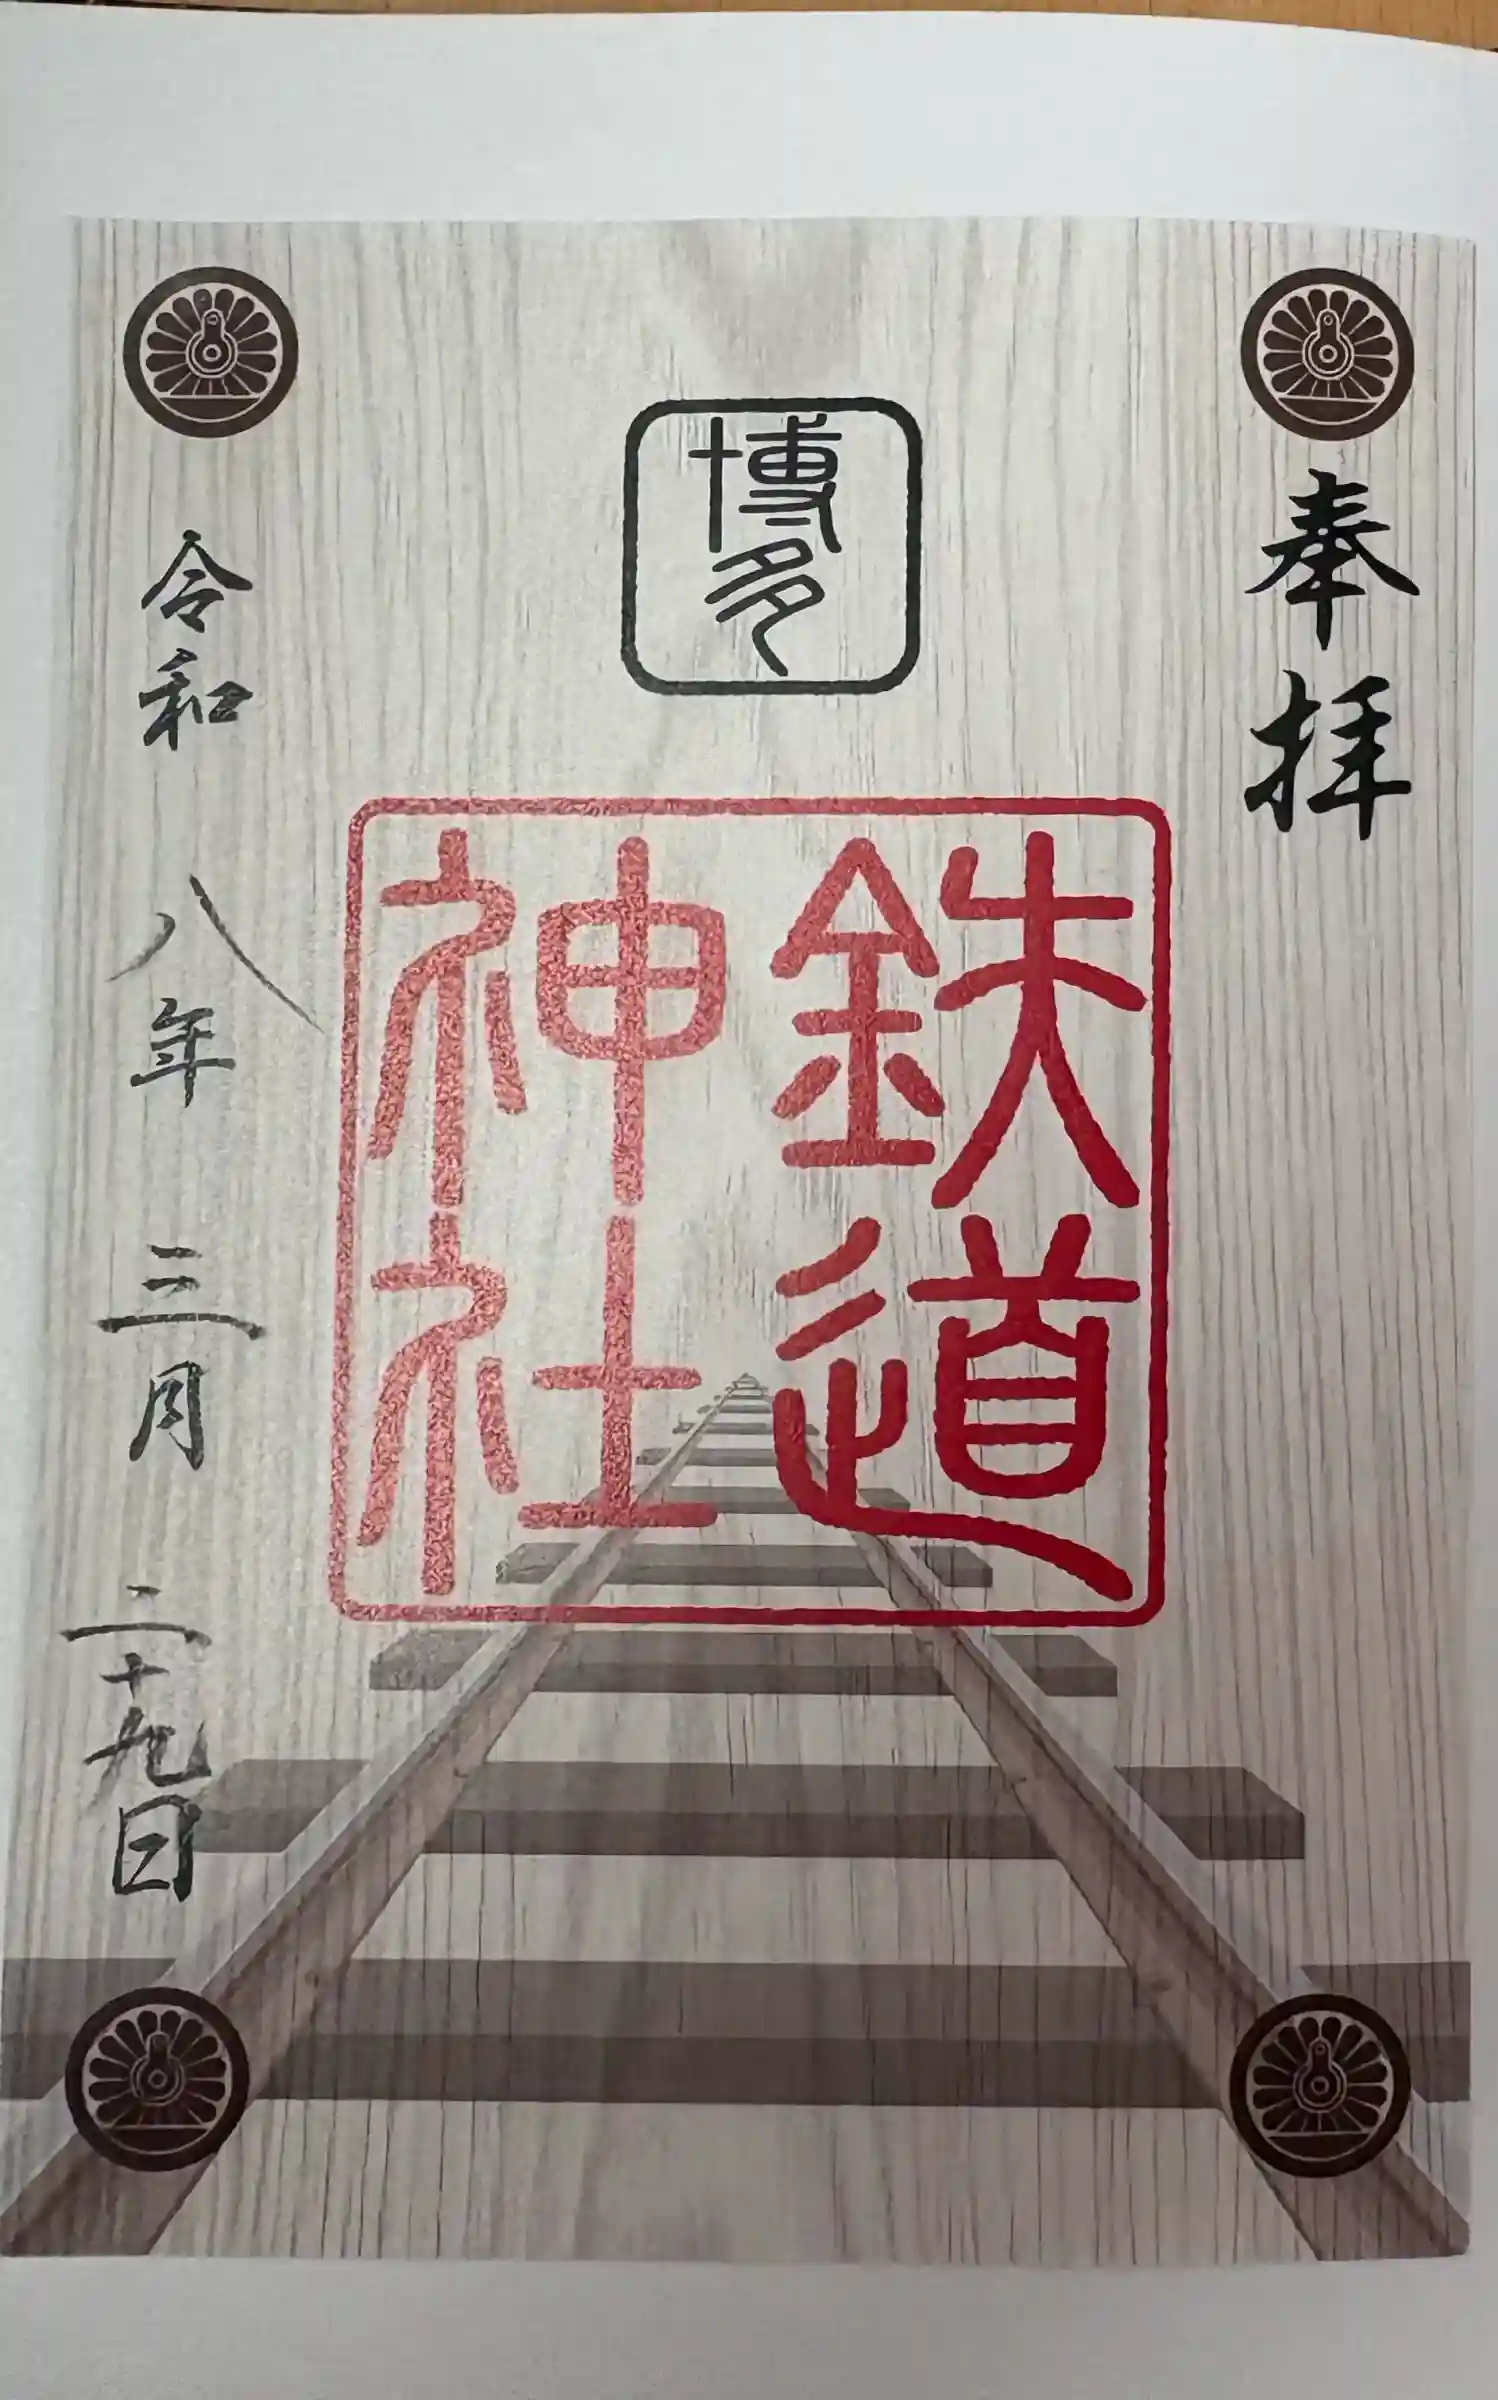 奉拝
博多
鉄道
神社
令和八年三月二十九日